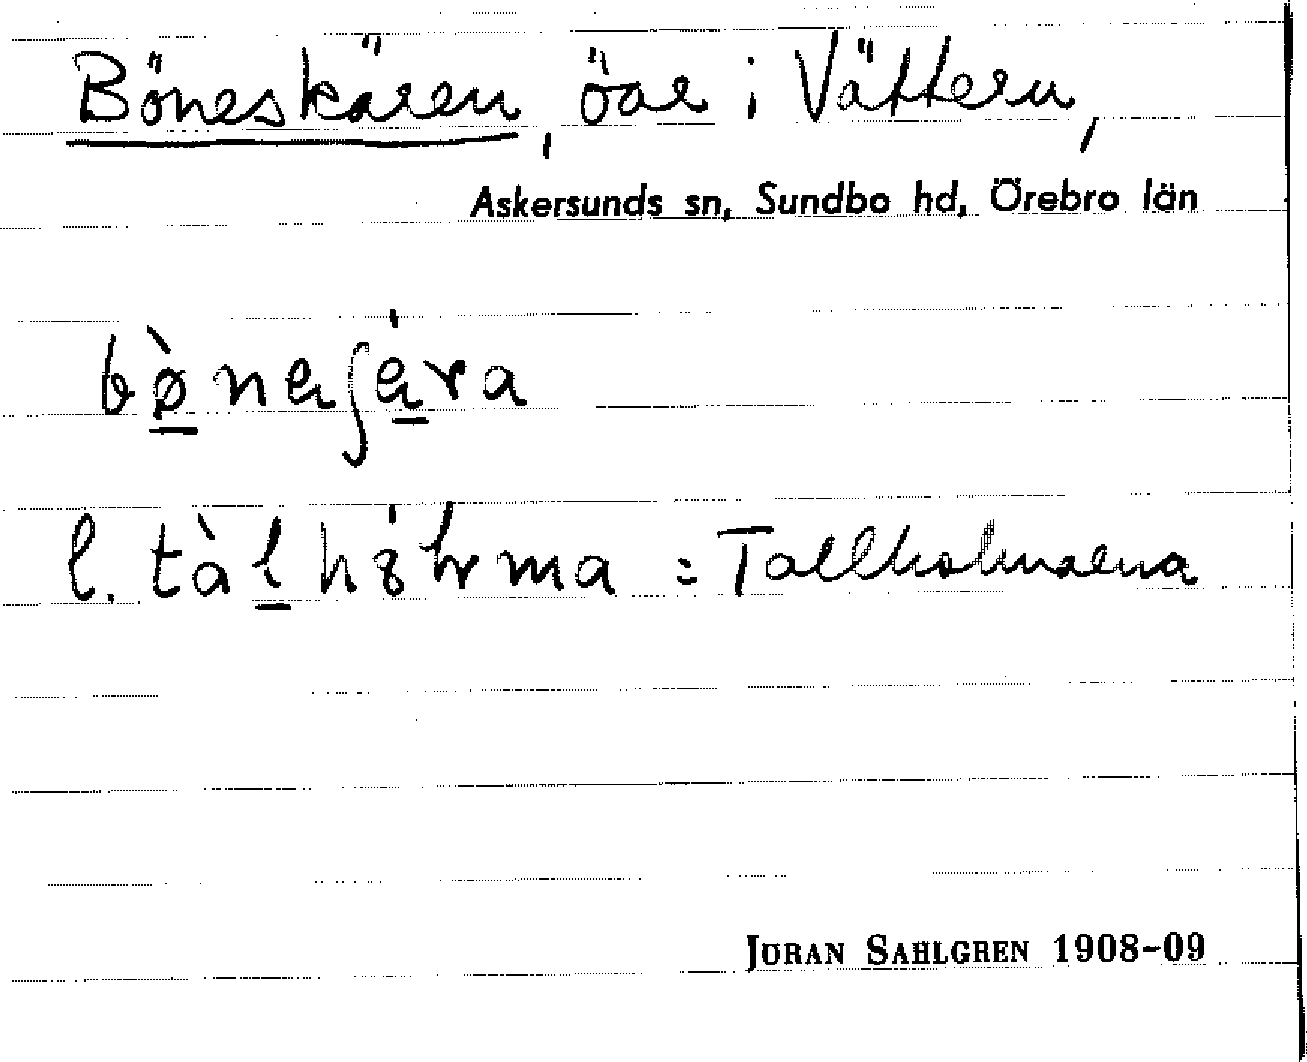 Böneskären, öar i Vättern,
Askersunds sn, Sundbo hd, Örebro län
bø̀neʃära
l. tàl hȯlma = Tallholmarna
JÖRAN SAHLGREN 1908-09